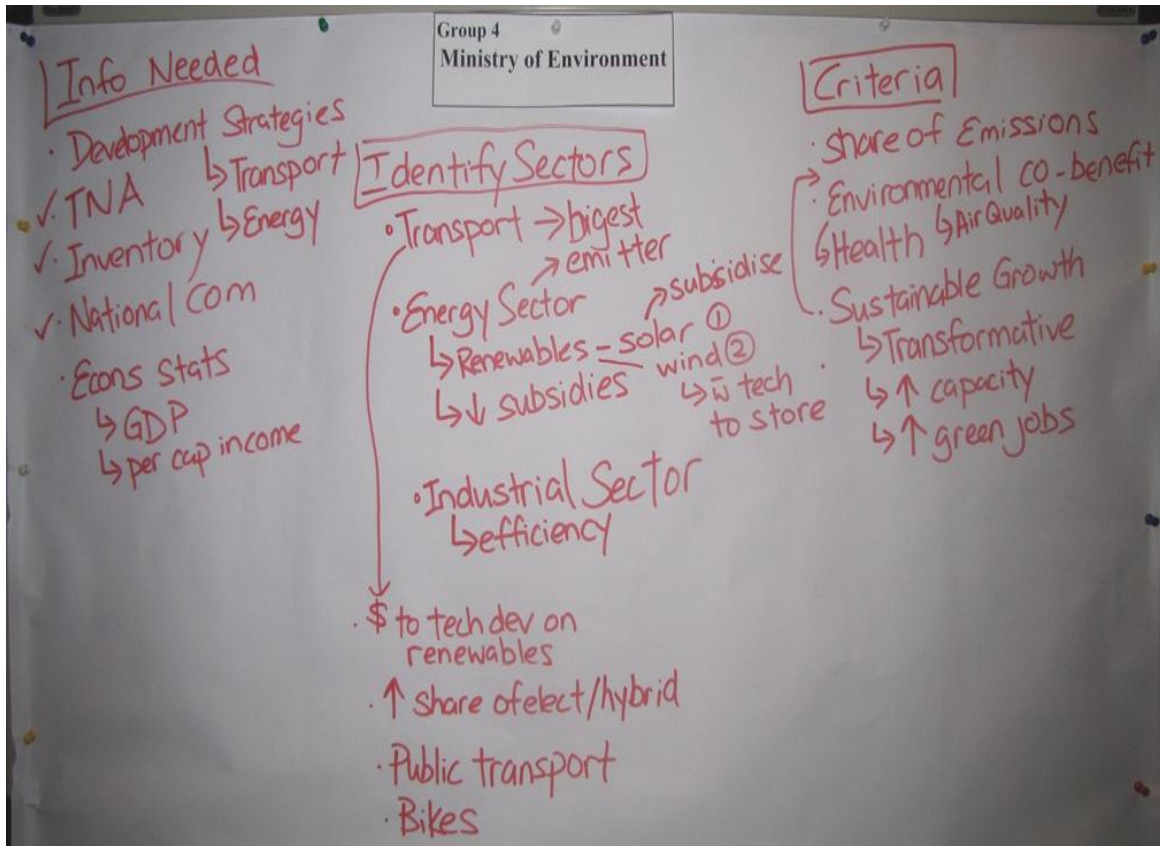 Group 4
Ministry of Environment
Info Needed
· Development Strategies
↳ Transport
↳ Energy
✓· TNA
✓· Inventory
✓· National Com
· Econs stats
↳ GDP
↳ per cap income
Identify Sectors
• Transport → bigest
emitter
• Energy Sector ↗
↳ Renewables - solar ① ↗ subsidise
wind ②
↳ w̄ tech
to store
↳ ↓ subsidies
• Industrial Sector
↳ efficiency
· $ to tech dev on
renewables
· ↑ share of elect/hybrid
· Public transport
· Bikes
Criteria
· Share of Emissions
· Environmental co-benefit
↳ Health ↳ Air Quality
· Sustainable Growth
↳ Transformative
↳ ↑ capacity
↳ ↑ green jobs